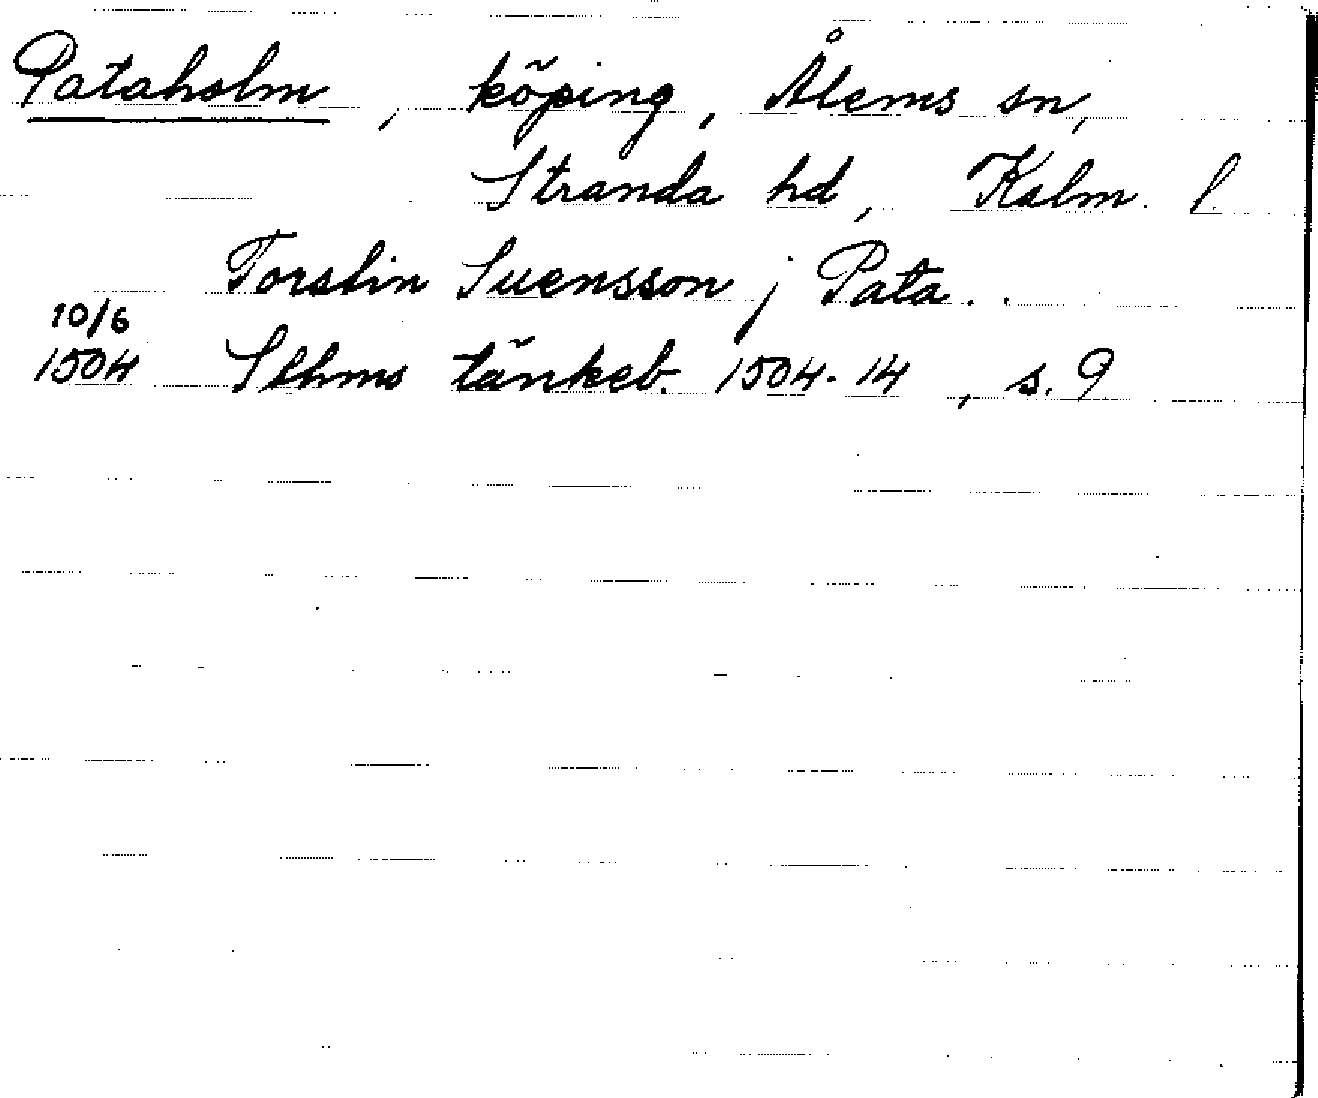 Pataholm, köping, Ålems sn,
Stranda hd, Kalm. l.
Torstin Suensson j Pata..
10/6
1504 Sthms tänkeb. 1504-14, s. 9